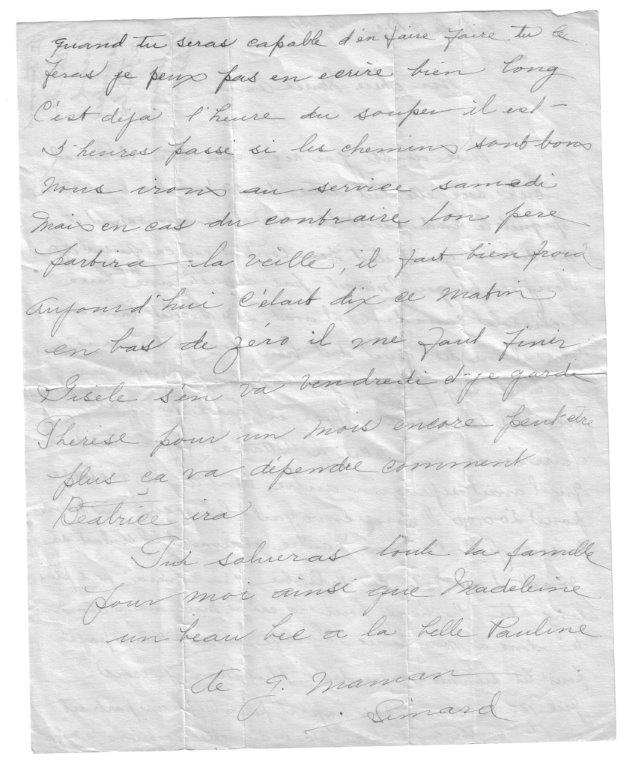 quand tu seras capable d'en faire faire tu le
feras je peux pas en ecrire bien long
C'est deja l'heure du souper il est
5 heures passé si les chemins sont bons
nous irons au service samedi
Mais en cas du contraire ton père
partira la veille, il fait bien froid
aujourd'hui c'était dix ce matin
en bas de zéro il me faut finir
Gisele s'en va vendredi et je garde
Thérèse pour un mois encore peut etre
plus ça va dépendre comment
Béatrice ira
Tu salueras toute la famille
pour moi ainsi que Madeleine
un beau bec a la belle Pauline
de G. Maman
Simard